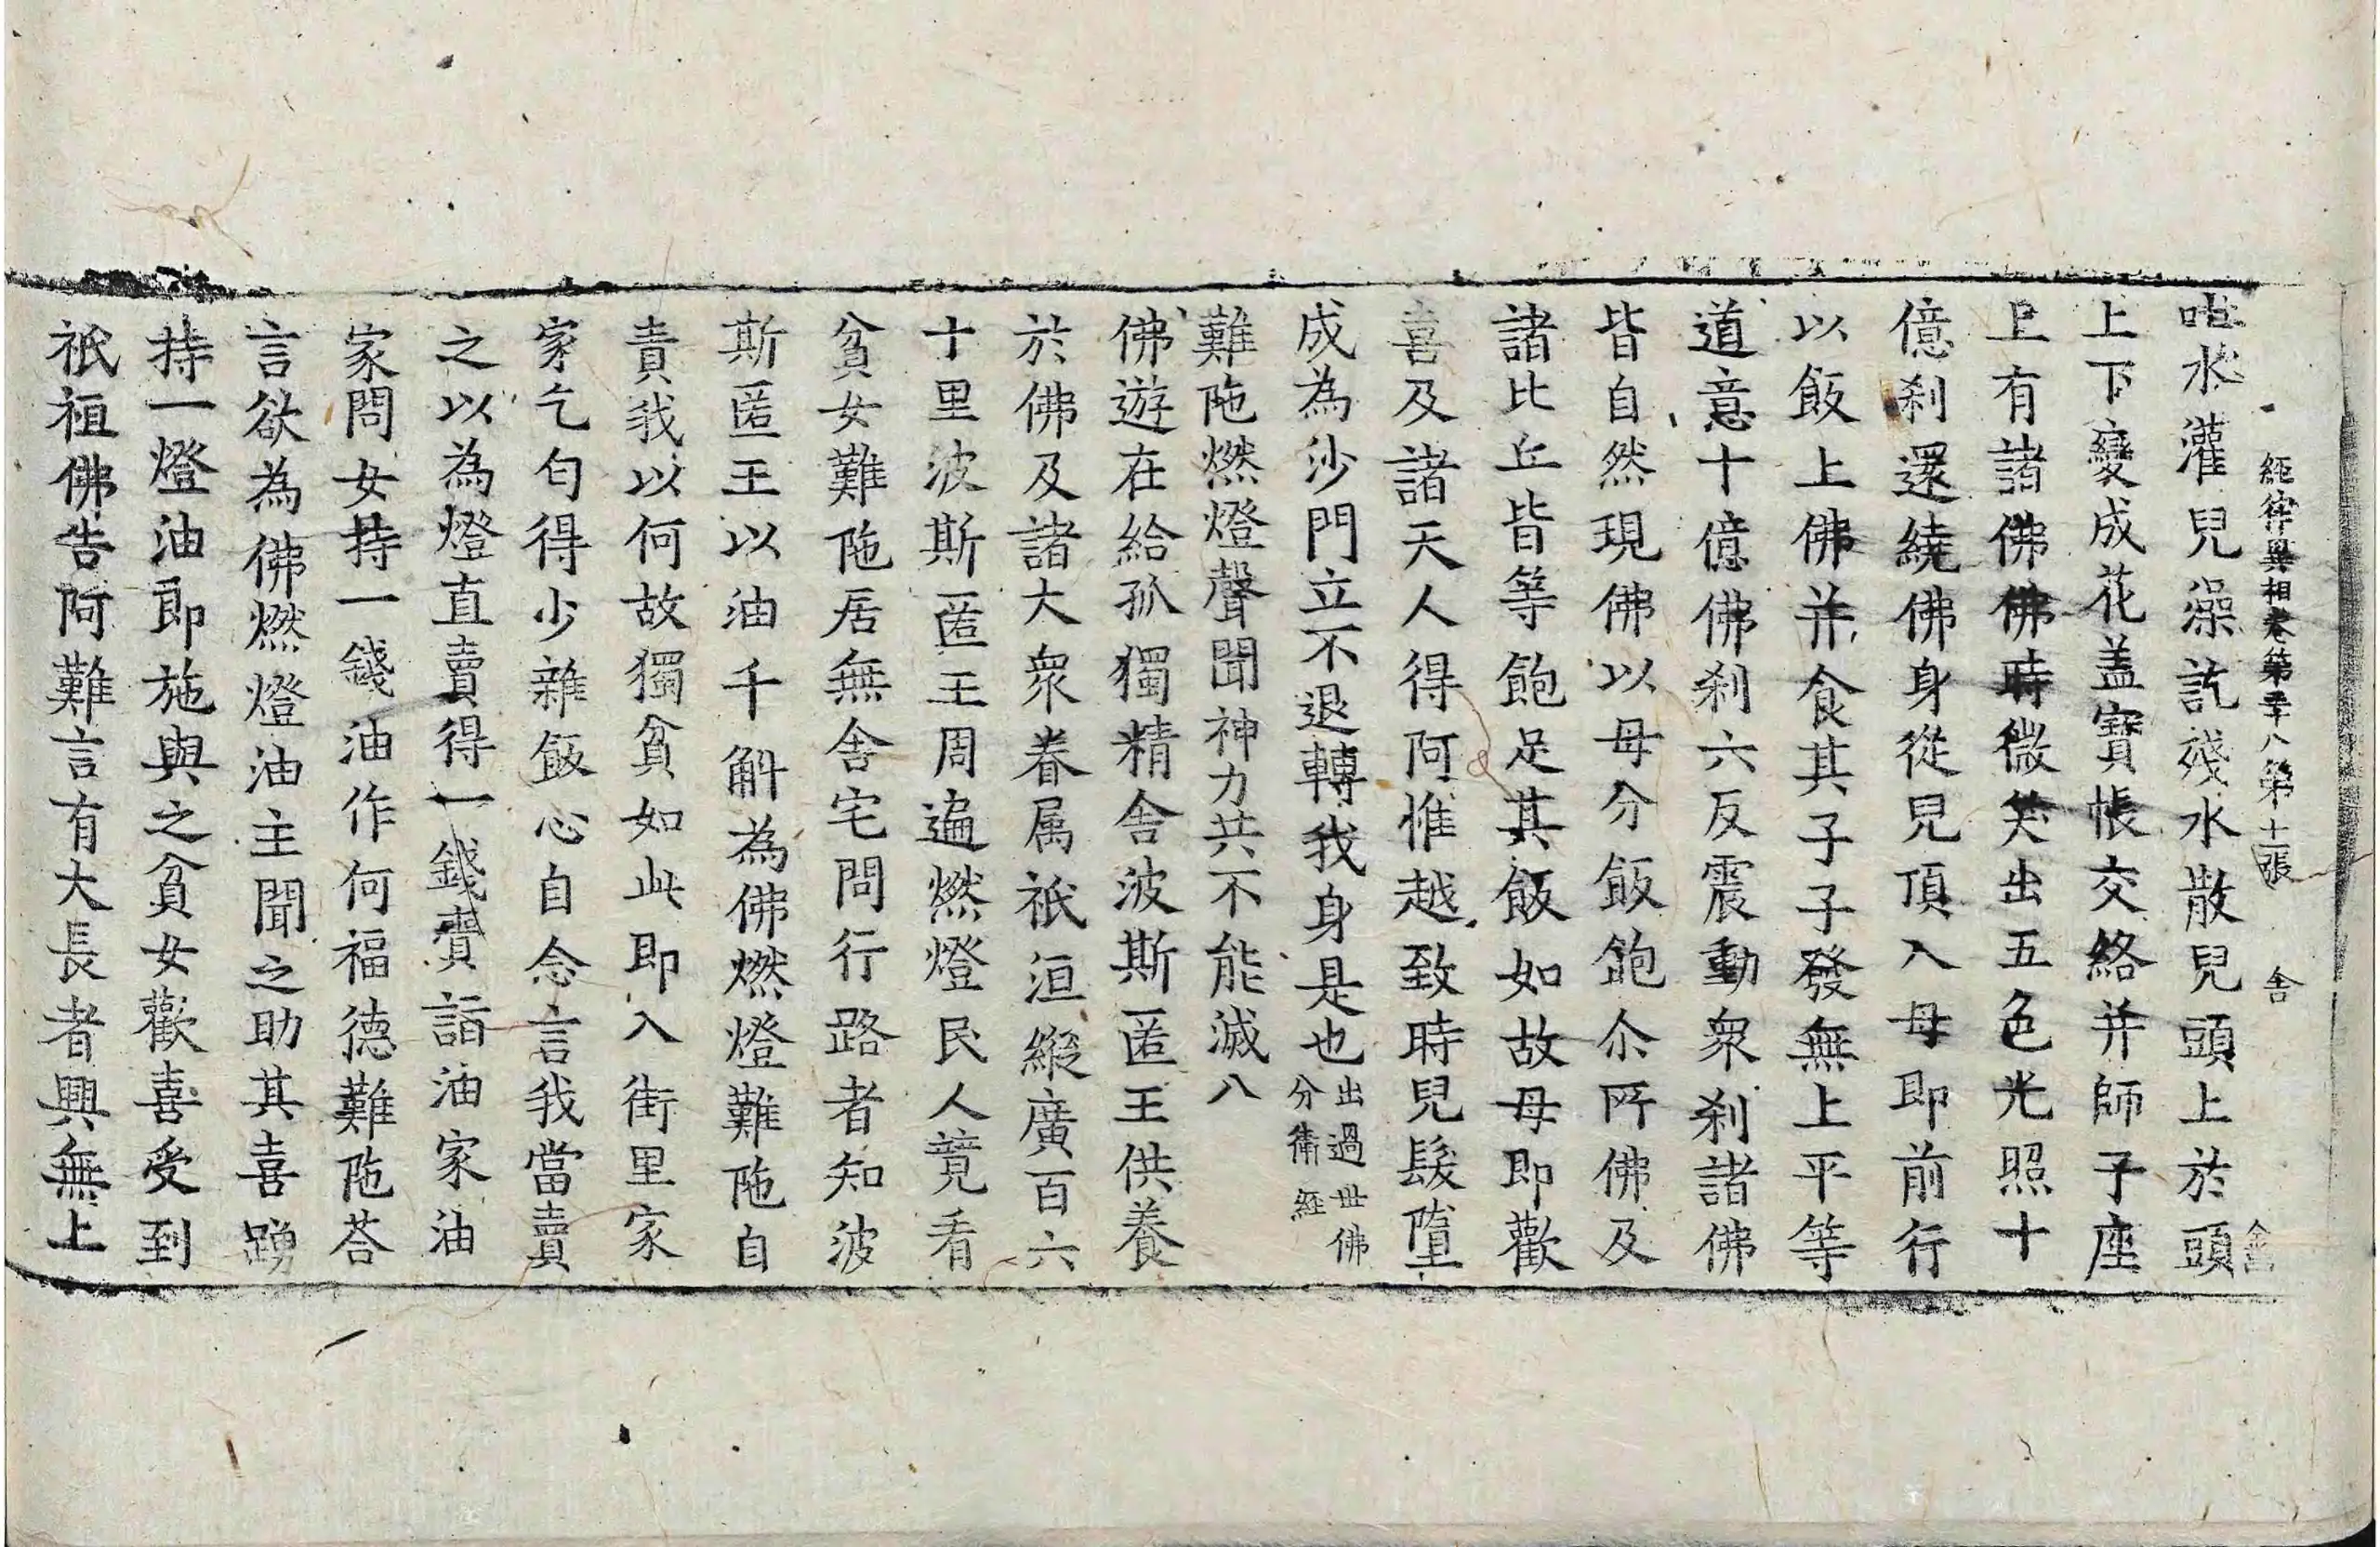 經律異相卷第三十八第十一張 舍
水灌兒澡訖殘水散兒頭上於頭
上下變成花盖寶帳交絡并師子座
上有諸佛佛時微笑出五色光照十
億刹還繞佛身從兒頂入母即前行
以飯上佛并食其子子發無上平等
道意十億佛刹六反震動衆刹諸佛
皆自然現佛以母分飯飽尒所佛及
諸比丘皆等飽足其飯如故母即歡
喜及諸天人得阿惟越致時兒髮墮
成為沙門立不退轉我身是也出過世佛分衛經
難陁燃燈聲聞神力共不能滅八
佛遊在給孤獨精舍波斯匿王供養
於佛及諸大衆眷属祇洹縱廣百六
十里波斯匿王周遍燃燈民人競看
貧女難陁居無舍宅問行路者知波
斯匿王以油千斛為佛燃燈難陁自
責我以何故獨貧如此即入街里家
家乞匄得少雜飯心自念言我當賣
之以為燈直賣得一錢賷詣油家油
家問女持一錢油作何福德難陁荅
言欲為佛燃燈油主聞之助其喜踴
持一燈油即施與之貧女歡喜受到
祇祖佛告阿難言有大長者興無上